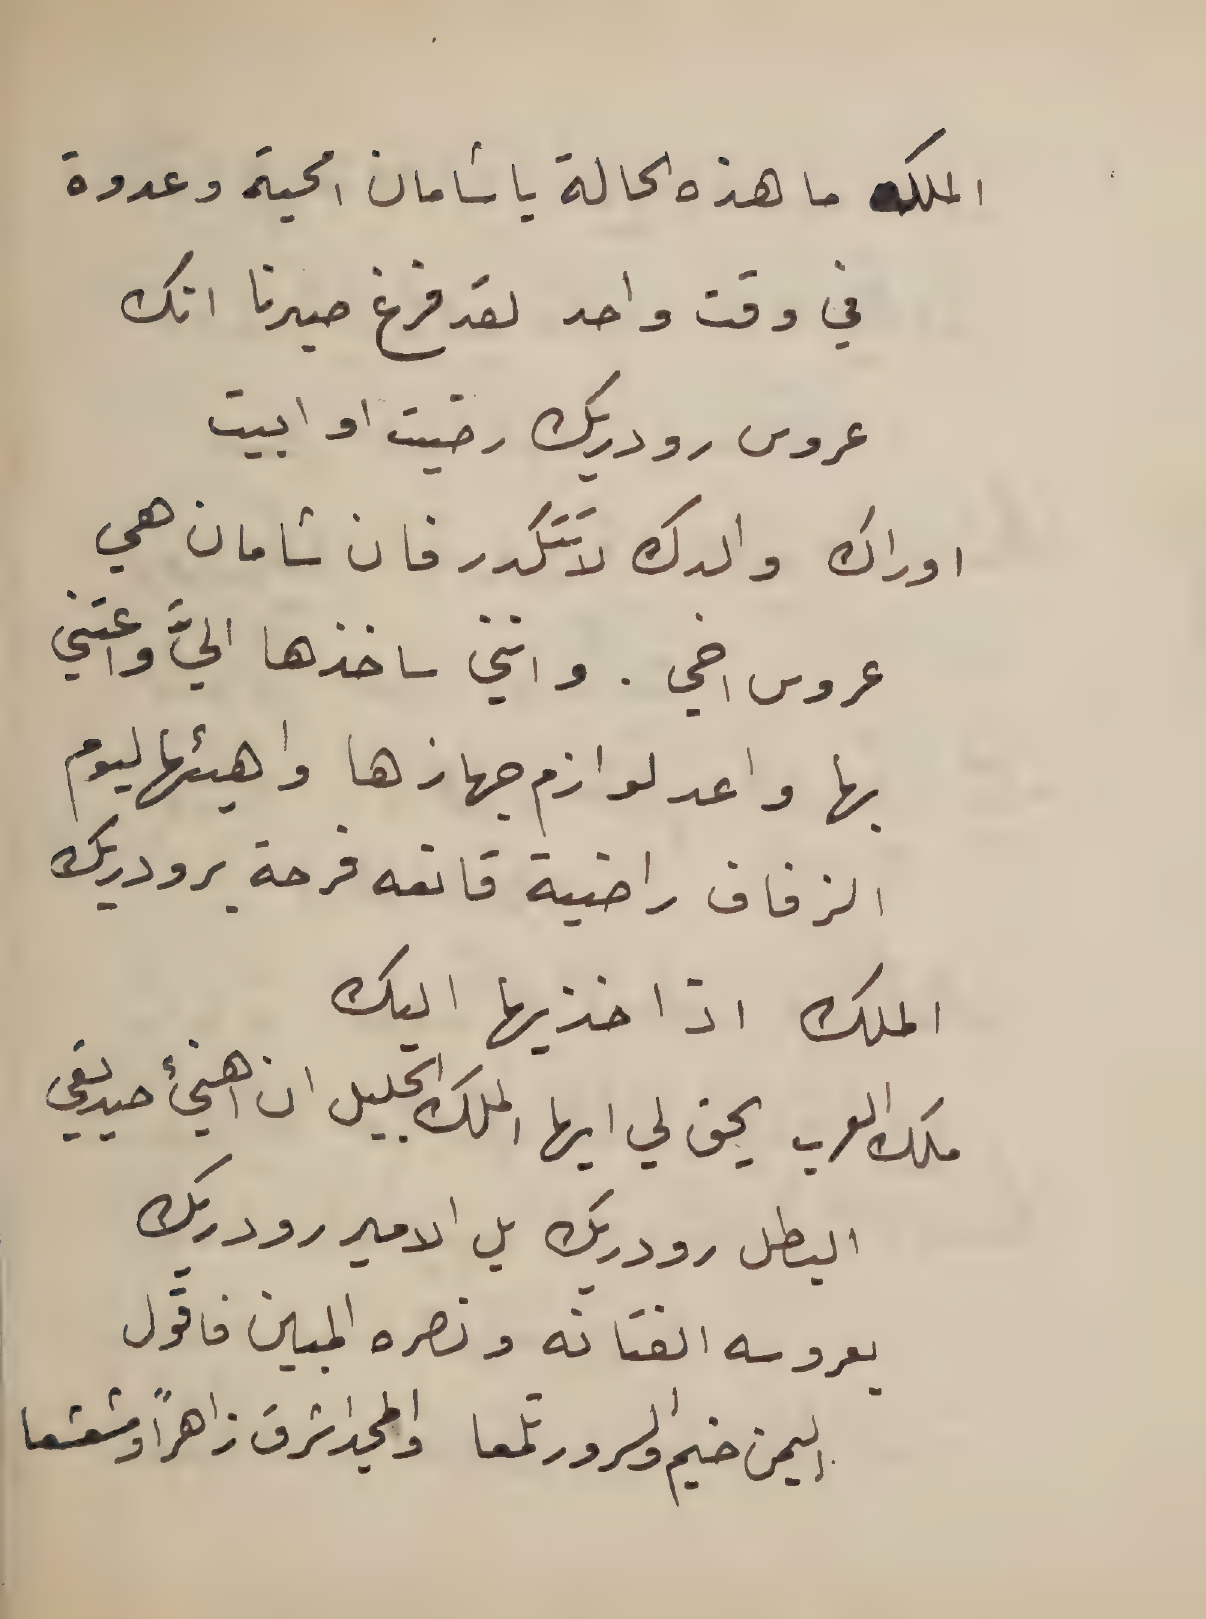 الملك ما هذه الحالة يا شامان امحبة وعدوة
في وقت واحد لقد فرغ صبرنا انك
عروس رودريك رضيت او ابيت
اوراك والدك لاتتكدر فان شامان هي
عروس اخي . وانني ساخذها اليَّ واعتني
بها واعد لوازم جهازها واهيئها ليوم
الزفاف راضية قانعه فرحة برودريك
الملك اذا خذيها اليك
ملك العرب يحق لي ايها الملك الجليل ان اهنئ صديقي
البطل رودريك بل الامير رودريك
بعروسه الفتانه ونصره المبين فاقول
اليمن خيم والسرور تلمعا والمجد اشرق زاهراً ومشعشعا